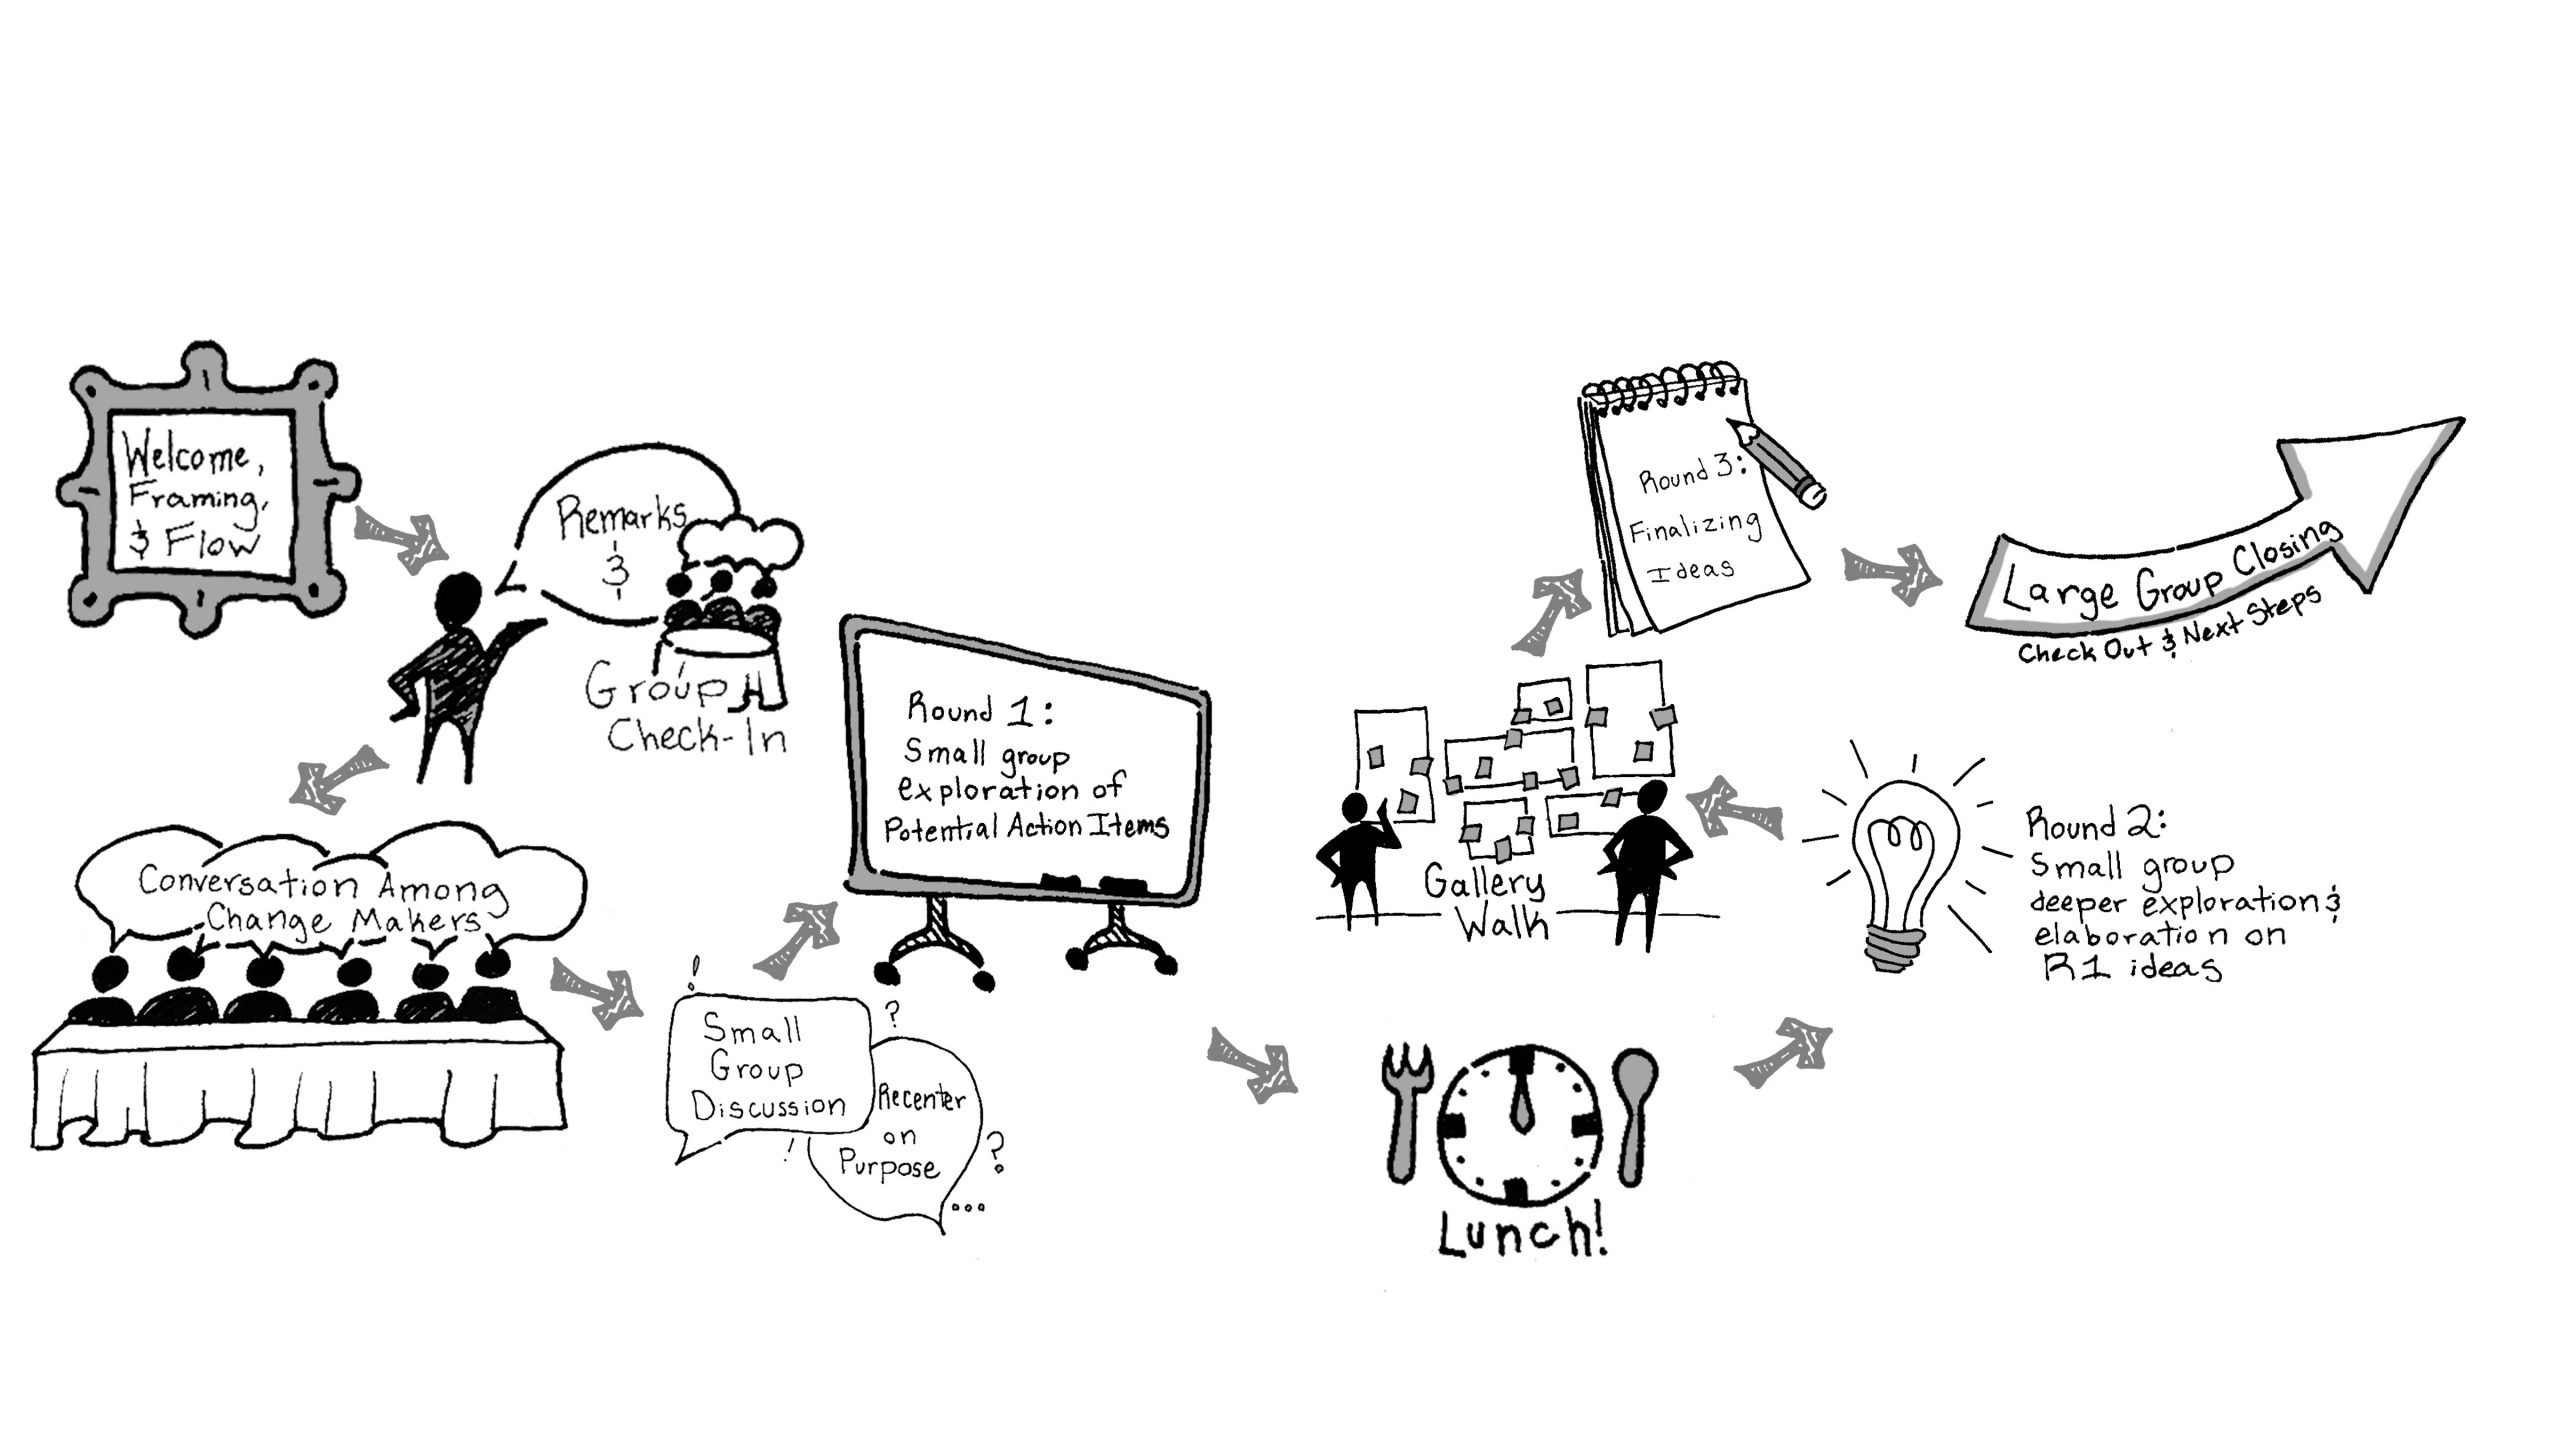 Welcome,
Framing,
& Flow
Remarks
&
Group
Check-In
Conversation Among
Change Makers
!
Small
Group
Discussion
!
?
Recenter
on
Purpose
?
...
Round 1:
Small group
exploration of
Potential Action Items
Lunch!
Round 2:
Small group
deeper exploration &
elaboration on
R1 ideas
Gallery
Walk
Round 3:
Finalizing
Ideas
Large Group Closing
Check Out & Next Steps